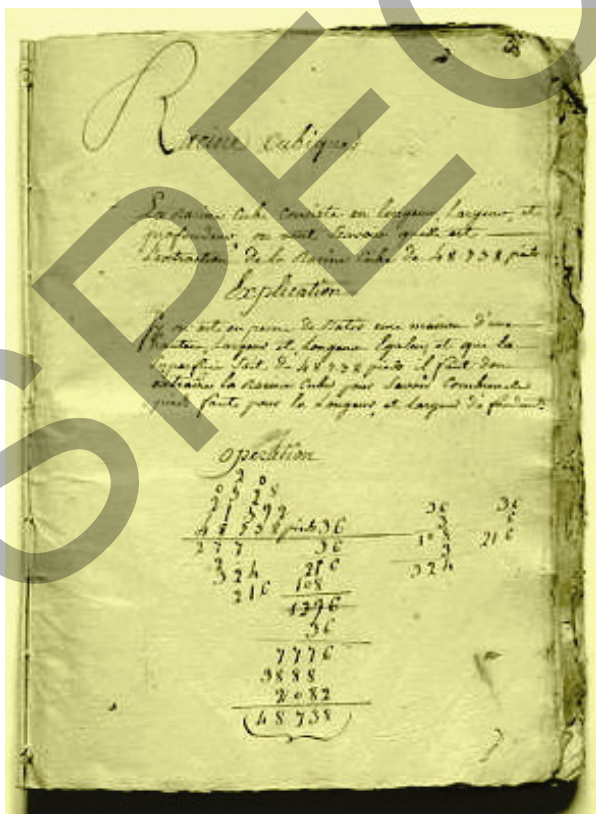 Racine cubique
La Racine Cube consiste en longueur, largeur, et
profondeur, on veut Savoir quelle est
L'extraction de la Racine Cube de 48738 pieds
Explication
on est en peine de Batir une maison d'une
hauteur, largeur et longueur Egales, et que la
Superficie Soit de 48738 pieds il faut donc
extraire la Racine Cube pour Savoir Combien de
pieds faut pour la Longueur, et largeur
Operation
2 0
0 5 2 8
2 1 5 9 2
48738 pieds 36 36 36
277 36 3 6
3 216 108 216
324 108 3
216 1296 324
36
7776
3888
2082
48738
SPEC